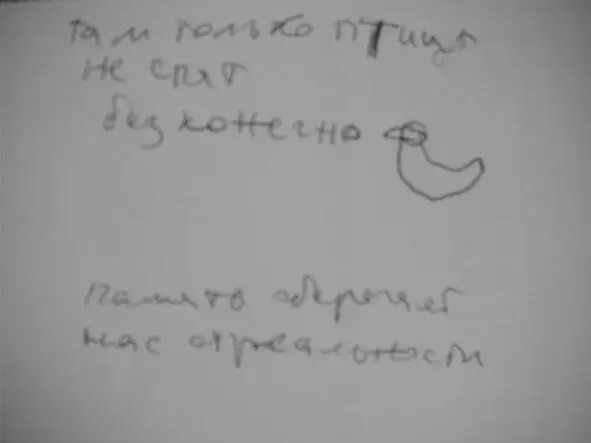 там только птицы
не спят
без конечно
память оберегает
нас от реальности